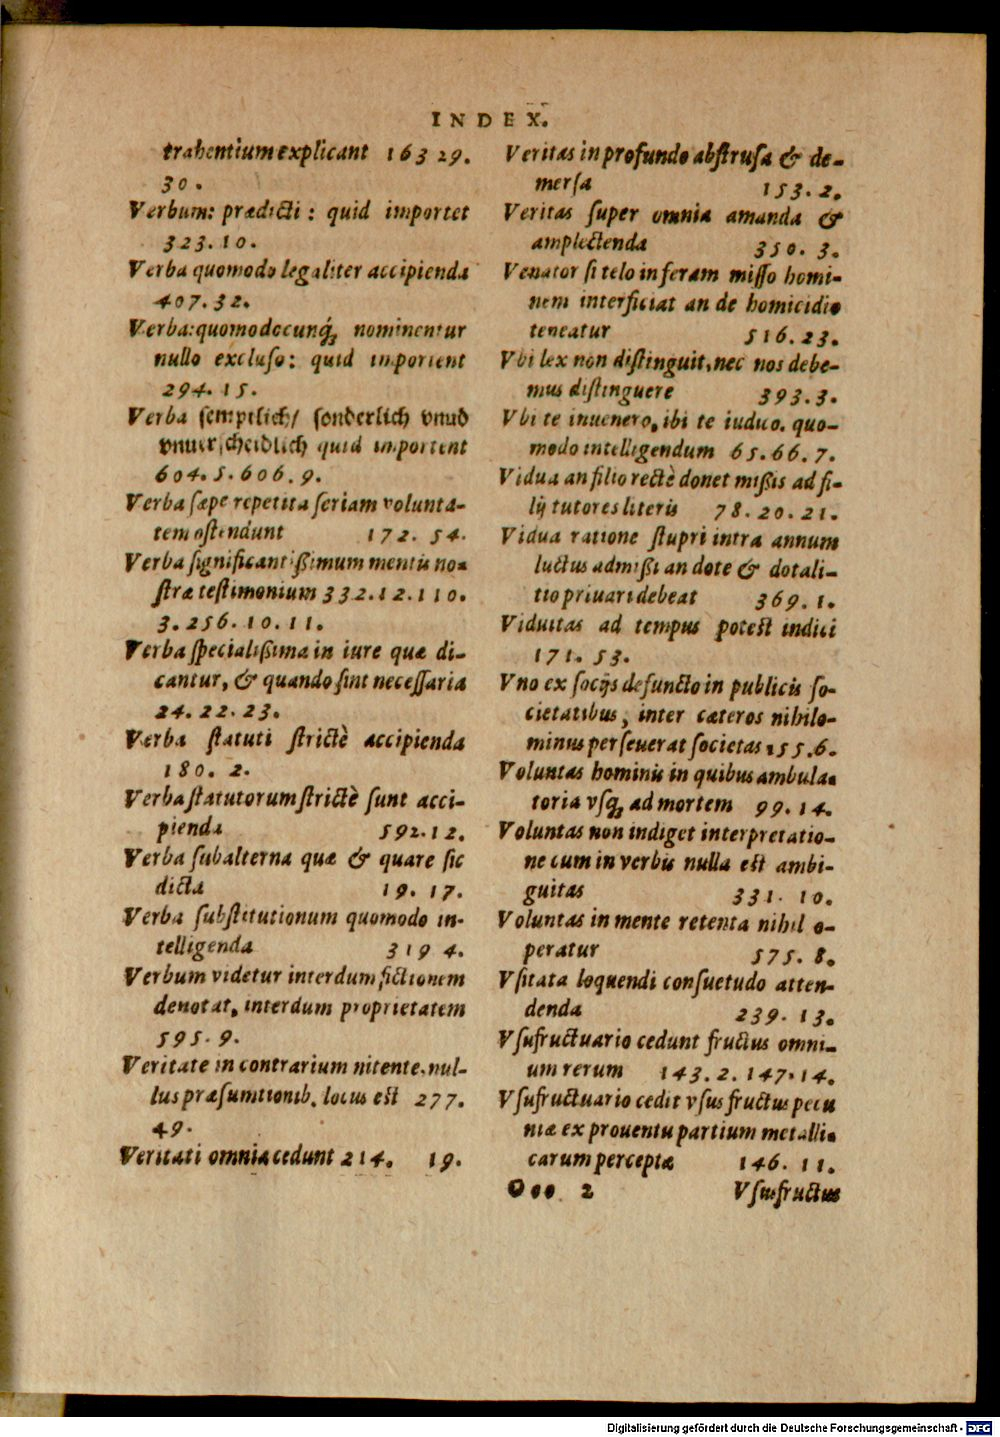 INDEX.
trahentium explicant 163 29.
30.
Verbum: prædicti: quid importet
323. 10.
Verba quomodo legaliter accipienda
407. 32.
Verba: quomodocunq́ꝫ nominentur
nullo excluso: quid importent
294. 15.
Verba semptlich/ sonderlich vnnd
vnuerscheidlich quid importent
604. 5. 606. 9.
Verba sæpe repetita seriam volunta-
tem ostendunt 172. 54.
Verba significantißimum mentis no-
stræ testimonium 332. 12. 110.
3. 256. 10. 11.
Verba specialißima in iure quæ di-
cantur, & quando sint necessaria
24. 22. 23.
Verba statuti strictè accipienda
180. 2.
Verba statutorum strictè sunt acci-
pienda 592. 12.
Verba subalterna quæ & quare sic
dicta 19. 17.
Verba substitutionum quomodo in-
telligenda 319 4.
Verbum videtur interdum fictionem
denotat, interdum proprietatem
595. 9.
Veritate in contrarium nitente, nul-
lus præsumtionib. locus est 277.
49.
Veritati omnia cedunt 214. 19.
Veritas in profundo abstrusa & de-
mersa 153. 2.
Veritas super omnia amanda &
amplectenda 350. 3.
Venator si telo in feram misso homi-
nem interficiat an de homicidio
teneatur 516. 23.
Vbi lex non distinguit, nec nos debe-
mus distinguere 393. 3.
Vbi te inuenero, ibi te iudico. quo-
modo intelligendum 65. 66. 7.
Vidua an filio rectè donet mißis ad fi-
lij tutores literis 78. 20. 21.
Vidua ratione stupri intra annum
luctus admißi an dote & dotali-
tio priuari debeat 369. 1.
Viduitas ad tempus potest indici
171. 53.
Vno ex socijs defuncto in publicis so-
cietatibus, inter cæteros nihilo-
minus perseuerat societas 155. 6.
Voluntas hominis in quibus ambula-
toria vsqꝫ ad mortem 99. 14.
Voluntas non indiget interpretatio-
ne cum in verbis nulla est ambi-
guitas 331. 10.
Voluntas in mente retenta nihil o-
peratur 575. 8.
Vsitata loquendi consuetudo atten-
denda 239. 13.
Vsufructuario cedunt fructus omni-
um rerum 143. 2. 147. 14.
Vsufructuario cedit vsus fructus pecu
niæ ex prouentu partium metalli-
carum perceptæ 146. 11.
Ooo 2 Vsusfructus
Digitalisierung gefördert durch die Deutsche Forschungsgemeinschaft - DFG